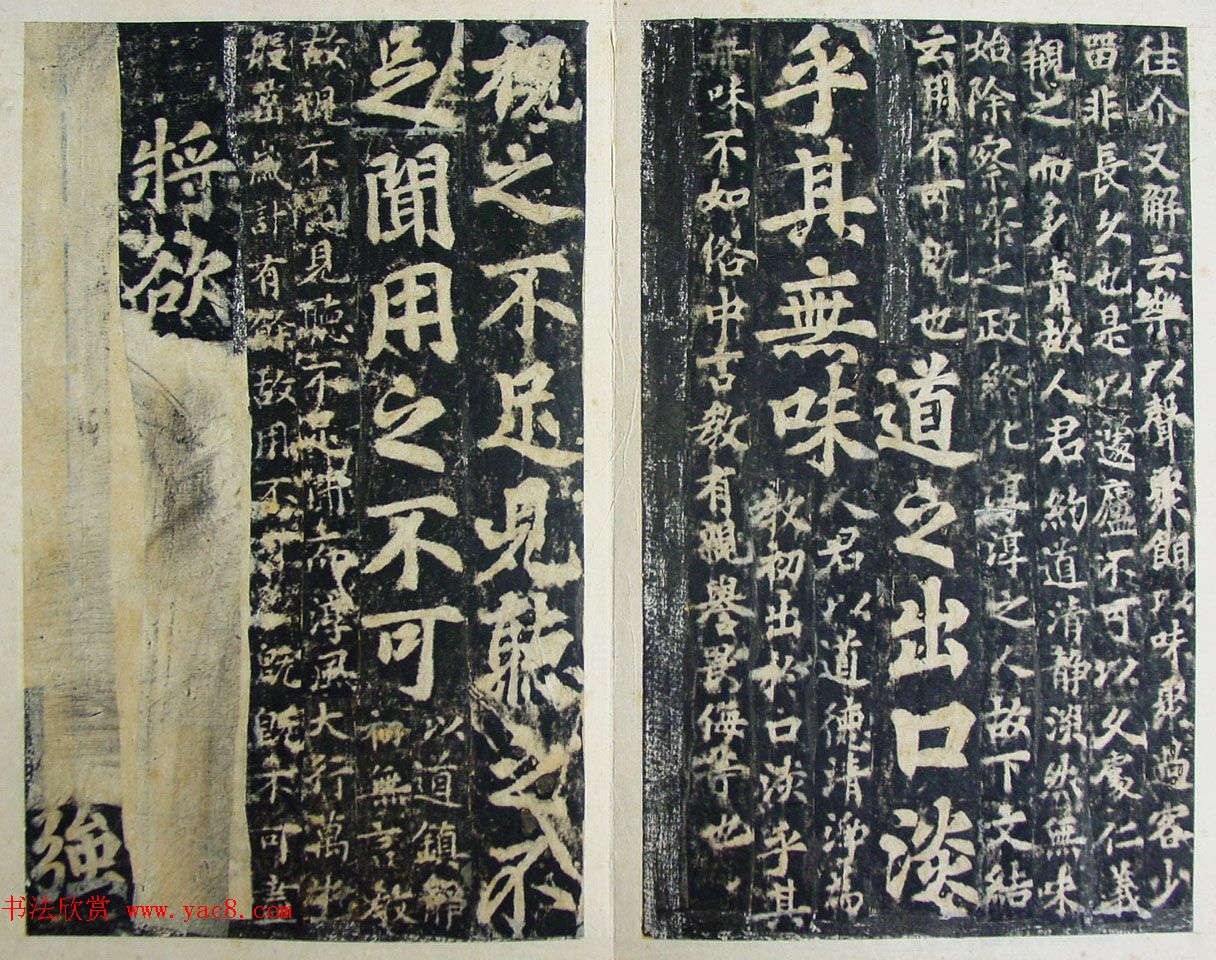 往介又解云樂以聲聚餌以味聚過客少
留非長久也是以遽廬不可以久處仁義
覯之而多責故人君約道清静淵然無味
始除察察之政終化淳淳之人故下文結
云用不可既也
道之出口淡
乎其無味
人君以道德清淨為
教初出於口淡乎其
無味不如俗中言教有親譽畏侮等也
視之不足見聽之不
足聞用之不可
以道鎮
初無言教
故視不足見聽不足聞而淳風大行萬物
殷富歲計有餘故用不可既既未可
將欲
強
书法欣赏 www.yac8.com